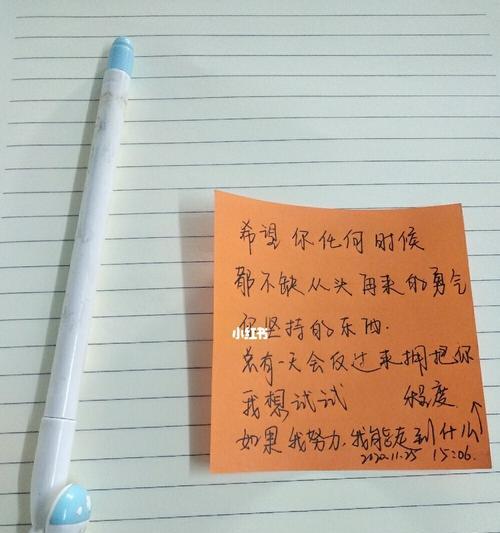 希望你任何时候
都不缺从头再来的勇气
你坚持的东西.
总有一天会反过来拥抱你
我想试试 程度
如果我努力.我能走到什么↑
2020.11.25 15:06.
小红书